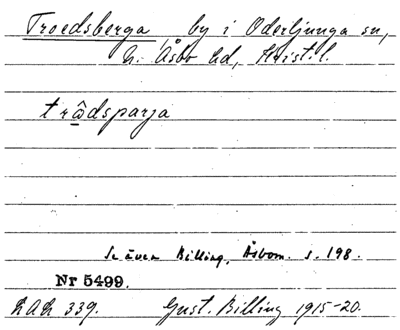 Troedsberga, by i Oderljunga sn,
N. Åsbo hd, Krist. l.
trâ̱dsparja
Se även Billing, Åsbom. s. 198.
Nr 5499.
LAL 339. Gust. Billing 1915-20.